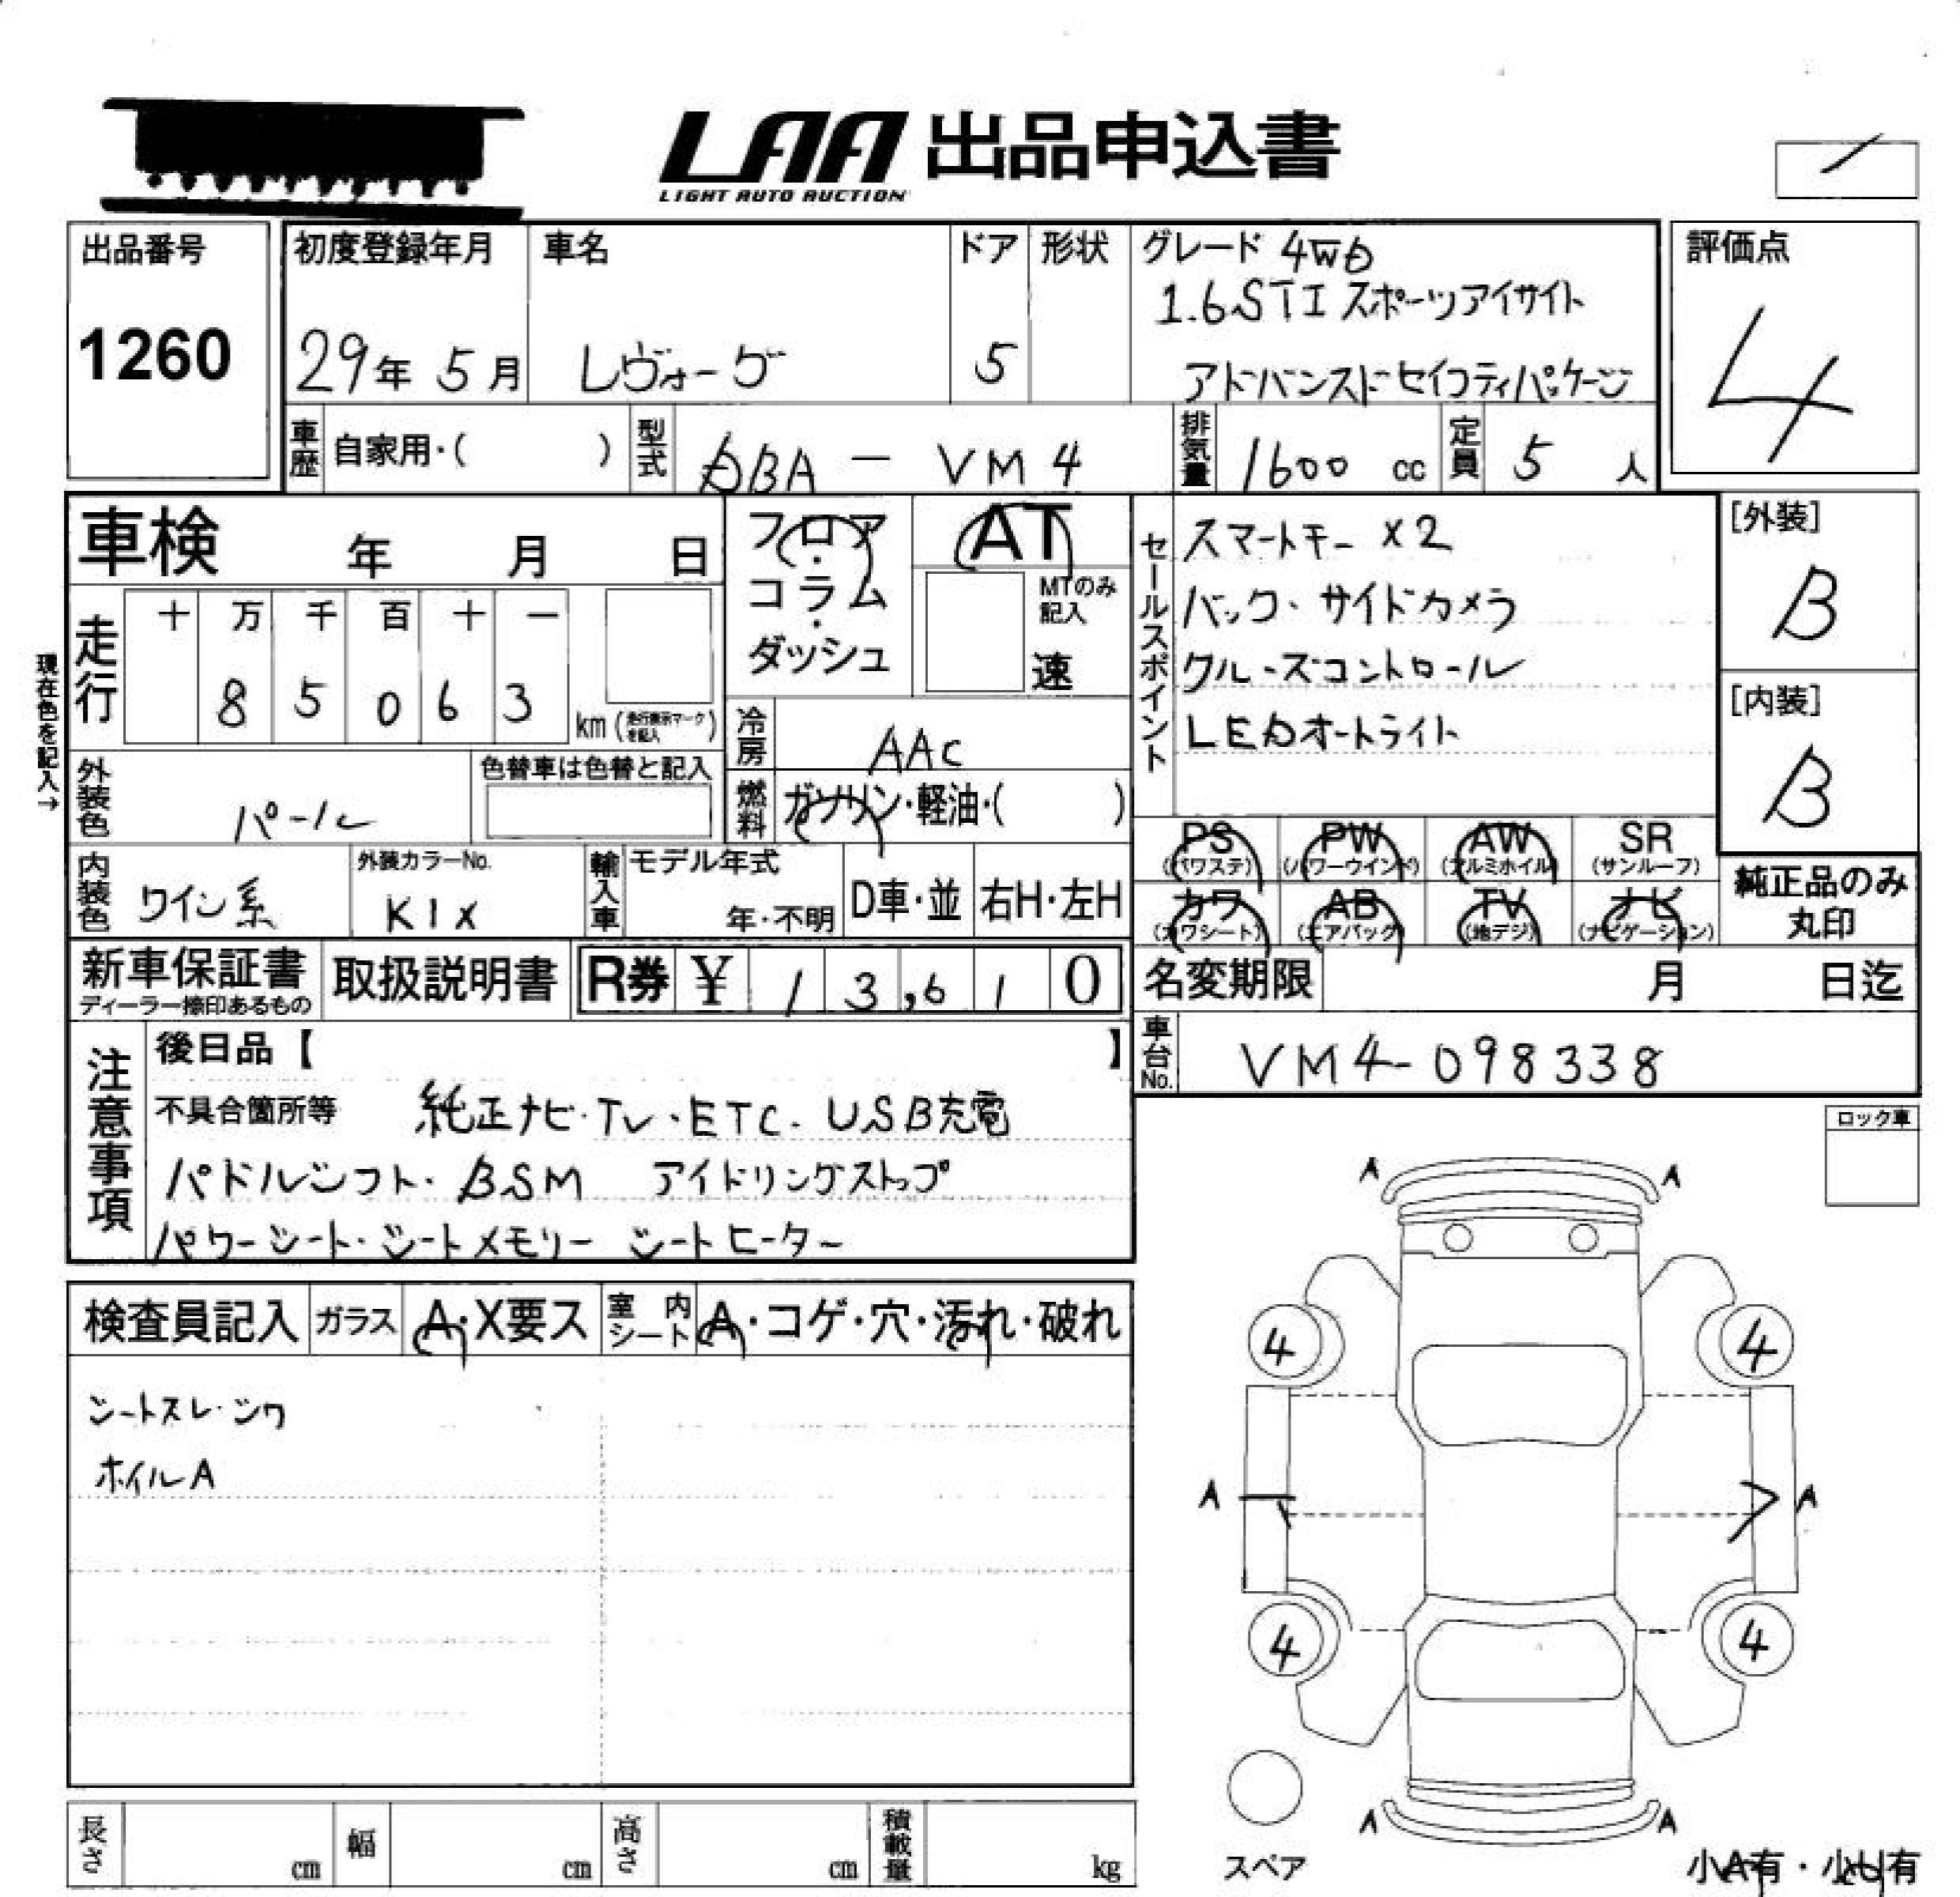 LAA 出品申込書
LIGHT AUTO AUCTION
出品番号
1260
初度登録年月
29年 5月
車名
レヴォーグ
ドア
5
形状
グレード 4WD
1.6 STI スポーツアイサイト
アドバンスドセイフティパッケージ
評価点
4
車歴
自家用・( )
型式
DBA - VM4
排気量
1600 cc
定員
5 人
車検 年 月 日
フロア・
コラム・
ダッシュ
AT
MTのみ
記入
速
セールスポイント
スマートキー ×2
バック・サイドカメラ
クルーズコントロール
LEDオートライト
[外装]
B
[内装]
B
現在色を記入→
走行
十 万 千 百 十 一
8 5 0 6 3
km (走行表示マークを記入)
冷房
AAC
燃料
ガソリン・軽油・( )
外装色
パール
色替車は色替と記入
PS
(パワステ)
PW
(パワーウインド)
AW
(アルミホイル)
SR
(サンルーフ)
カワ
(カワシート)
AB
(エアバック)
TV
(地デジ)
ナビ
(ナビゲーション)
純正品のみ
丸印
内装色
ワイン系
外装カラーNo.
K1X
輸入車
モデル年式
年・不明
D車・並
右H・左H
新車保証書
ディーラー捺印あるもの
取扱説明書
R券 ¥ 1 3,6 1 0
名変期限 月 日迄
車台No.
VM4-098338
注意事項
後日品【 】
不具合箇所等 純正ナビ・TV・ETC・USB充電
パドルシフト・BSM アイドリングストップ
パワーシート・シートメモリー シートヒーター
ロック車
検査員記入
ガラス
A・X要ス
室内シート
A・コゲ・穴・汚れ・破れ
シートスレ・シワ
ホイルA
A A
4 4
A A
4 4
A A
スペア
小A有・小U有
長さ cm
幅 cm
高さ cm
積載量 kg